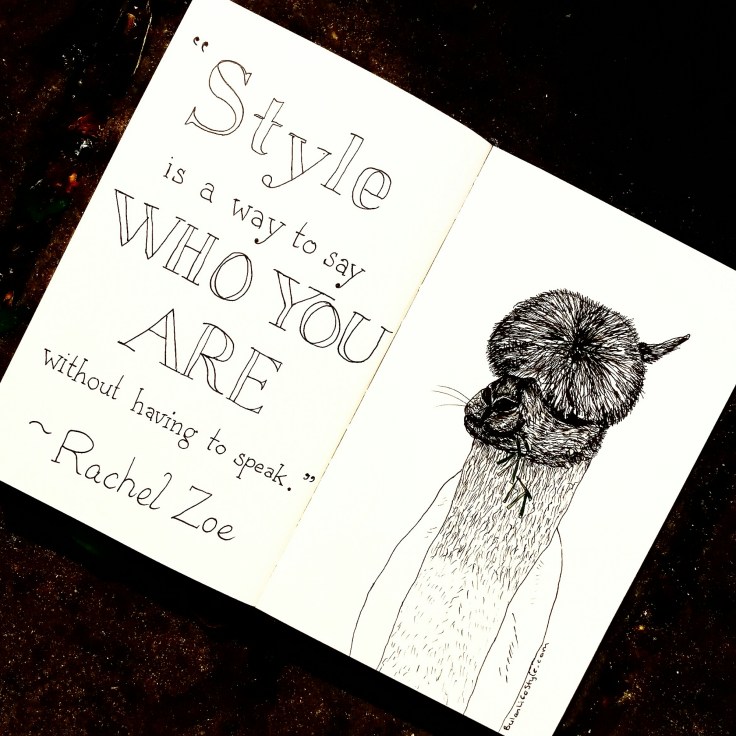 "Style
is a way to say
WHO YOU
ARE
without having to speak."
~Rachel Zoe
BulanLifestyle.com